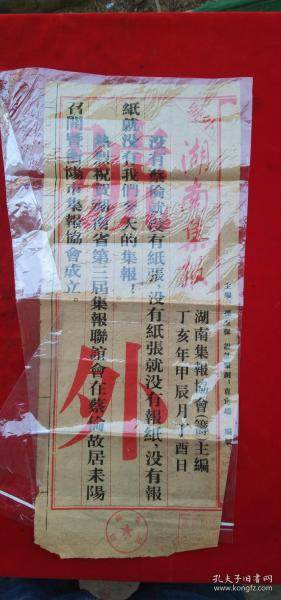 湖南集报
湖南集報協會(籌)主編
丁亥年甲辰月丁酉日
没有蔡倫就没有紙張,没有紙張就没有報紙,没有報
紙就没有我們今天的集報!
熱烈祝賀湖南省第三届集報聯誼會在蔡倫故居耒陽
召開暨衡陽市集報協會成立。
號外
孔夫子旧书网